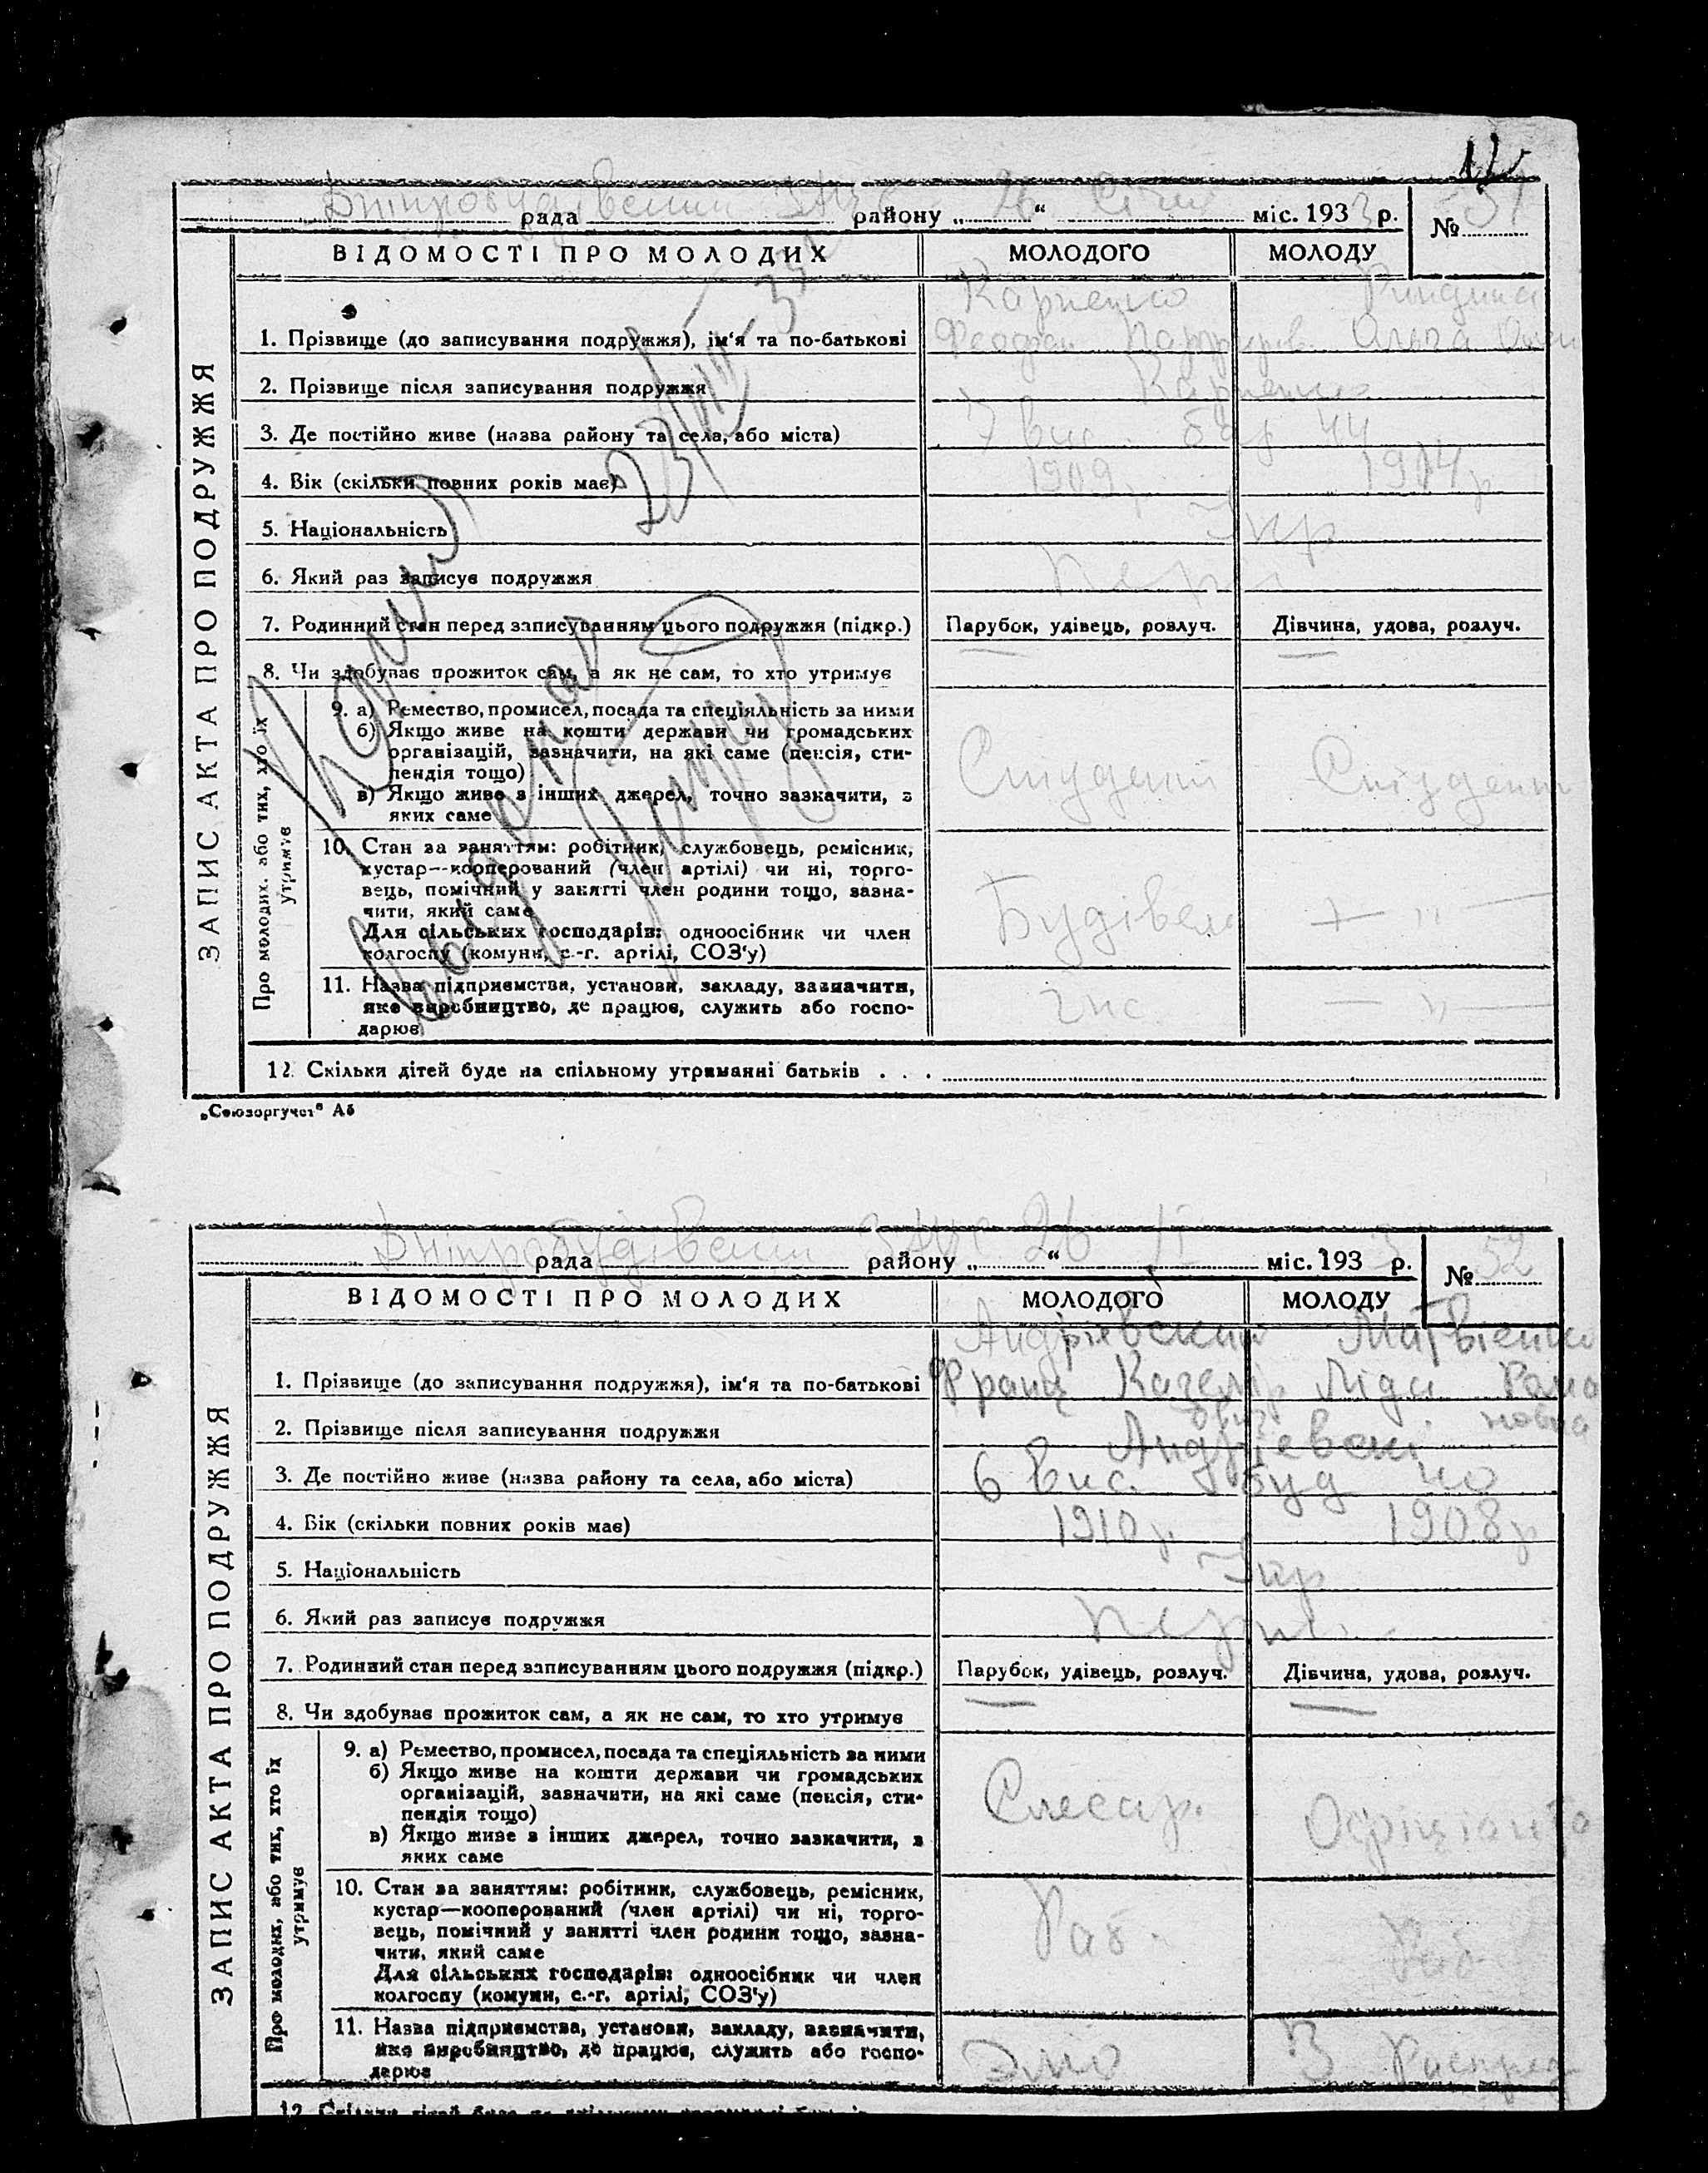 Дніпробудівський ЗАГС 26 Січня
рада району „ “ міс. 1933 р. № 51
ВІДОМОСТІ ПРО МОЛОДИХ МОЛОДОГО МОЛОДУ
Карпенко
1. Прізвище (до записування подружжя), ім‘я та по-батькові Ольга
2. Прізвище після записування подружжя Карпенко
3. Де постійно живе (назва району та села, або міста) 7 вис. 44
4. Вік (скільки повних років має) 1909р 1914р
5. Національність Укр
6. Який раз записує подружжя перш
7. Родинний стан перед записуванням цього подружжя (підкр.) Парубок, удівець, розлуч. Дівчина, удова, розлуч.
8. Чи здобуває прожиток сам, а як не сам, то хто утримує
9. а) Ремество, промисел, посада та спеціяльність за ними
б) Якщо живе на кошти держави чи громадських
організацій, зазначити, на які саме (пенсія, сти-
пендія тощо) Студент Студент
в) Якщо живе з інших джерел, точно зазначити, з
яких саме
10. Стан за заняттям: робітник, службовець, ремісник,
кустар—кооперований (член артілі) чи ні, торго-
вець, помічний у занятті член родини тощо, зазна- Будівел — „ —
чити, який саме
Для сільських господарів: одноосібник чи член
колгоспу (комуни, с.-г. артілі, СОЗ‘у)
11. Назва підприємства, установи, закладу, зазначити,
яке виробництво, де працює, служить або госпо- — „ —
дарює
12. Скільки дітей буде на спільному утриманні батьків . . .
ЗАПИС АКТА ПРО ПОДРУЖЖЯ
Про молодих, або тих, хто їх
утримує
„Союзоргучет“ Аб
Дніпробудівський ЗАГС 26 II
рада району „ “ міс. 1933 р. № 52
ВІДОМОСТІ ПРО МОЛОДИХ МОЛОДОГО МОЛОДУ
Андрієвський Матвієнко
1. Прізвище (до записування подружжя), ім‘я та по-батькові Франц Каземір Ліда Рома
2. Прізвище після записування подружжя Андрієвські новна
3. Де постійно живе (назва району та села, або міста) 6 вис. буд
4. Вік (скільки повних років має) 1910р 1908р
5. Національність Укр
6. Який раз записує подружжя перш.
7. Родинний стан перед записуванням цього подружжя (підкр.) Парубок, удівець, розлуч. Дівчина, удова, розлуч.
8. Чи здобуває прожиток сам, а як не сам, то хто утримує
9. а) Ремество, промисел, посада та спеціяльність за ними
б) Якщо живе на кошти держави чи громадських
організацій, зазначити, на які саме (пенсія, сти- Слесар.
пендія тощо) Офіціантка
в) Якщо живе з інших джерел, точно зазначити, з
яких саме
10. Стан за заняттям: робітник, службовець, ремісник,
кустар—кооперований (член артілі) чи ні, торго-
вець, помічний у занятті член родини тощо, зазна- Раб. Раб
чити, який саме
Для сільських господарів: одноосібник чи член
колгоспу (комуни, с.-г. артілі, СОЗ‘у)
11. Назва підприємства, установи, закладу, зазначити,
яке виробництво, де працює, служить або госпо-
дарює
12. Скільки дітей буде на спільному утриманні батьків
ЗАПИС АКТА ПРО ПОДРУЖЖЯ
Про молодих, або тих, хто їх
утримує